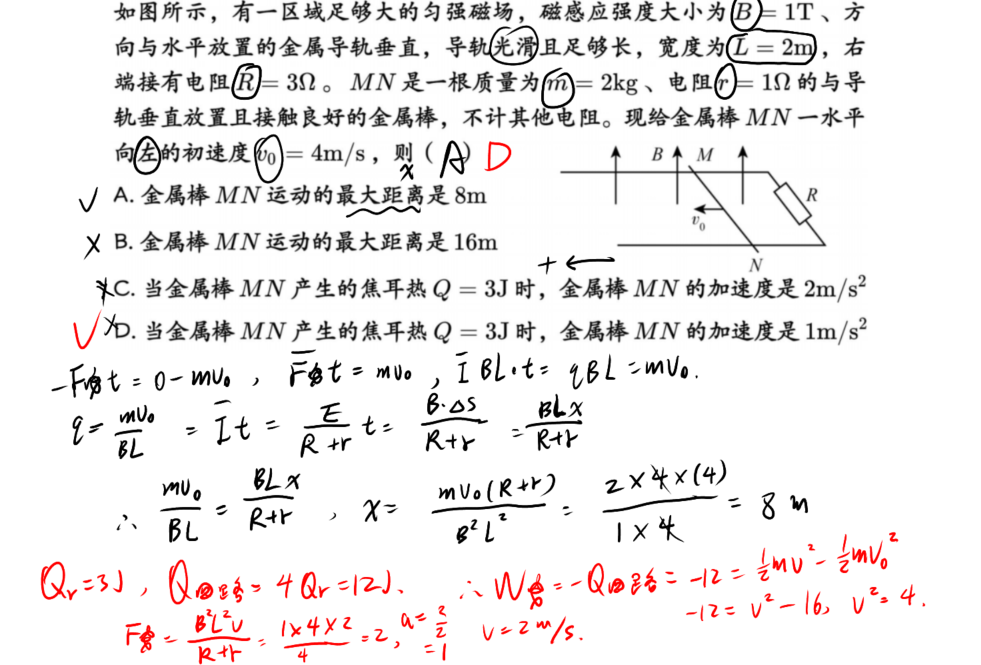 如图所示，有一区域足够大的匀强磁场，磁感应强度大小为 B = 1T 、方
向与水平放置的金属导轨垂直，导轨光滑且足够长，宽度为 L = 2m ，右
端接有电阻 R = 3Ω 。 MN 是一根质量为 m = 2kg 、电阻 r = 1Ω 的与导
轨垂直放置且接触良好的金属棒，不计其他电阻。现给金属棒 MN 一水平
向左的初速度 v₀ = 4m/s ，则（ A ） D
x
B M
R
v₀
N
✓ A. 金属棒 MN 运动的最大距离是 8m
× B. 金属棒 MN 运动的最大距离是 16m
+ ←
× C. 当金属棒 MN 产生的焦耳热 Q = 3J 时，金属棒 MN 的加速度是 2m/s²
✓ × D. 当金属棒 MN 产生的焦耳热 Q = 3J 时，金属棒 MN 的加速度是 1m/s²
-F安t = 0 - mv₀ , F̄安t = mv₀ , Ī BL·t = qBL = mv₀.
q = mv₀/BL = Īt = E/(R+r) t = B·ΔS/(R+r) = BLx/(R+r)
∴ mv₀/BL = BLx/(R+r) , x = mv₀(R+r)/B²L² = 2×4×(4)/1×4 = 8 m
Qr = 3J , Q回路 = 4Qr = 12J. ∴ W安 = -Q回路 = -12 = ½mv² - ½mv₀²
-12 = v² - 16, v² = 4.
F安 = B²L²v/(R+r) = 1×4×2/4 = 2, a = 2/2 = 1 v = 2 m/s.